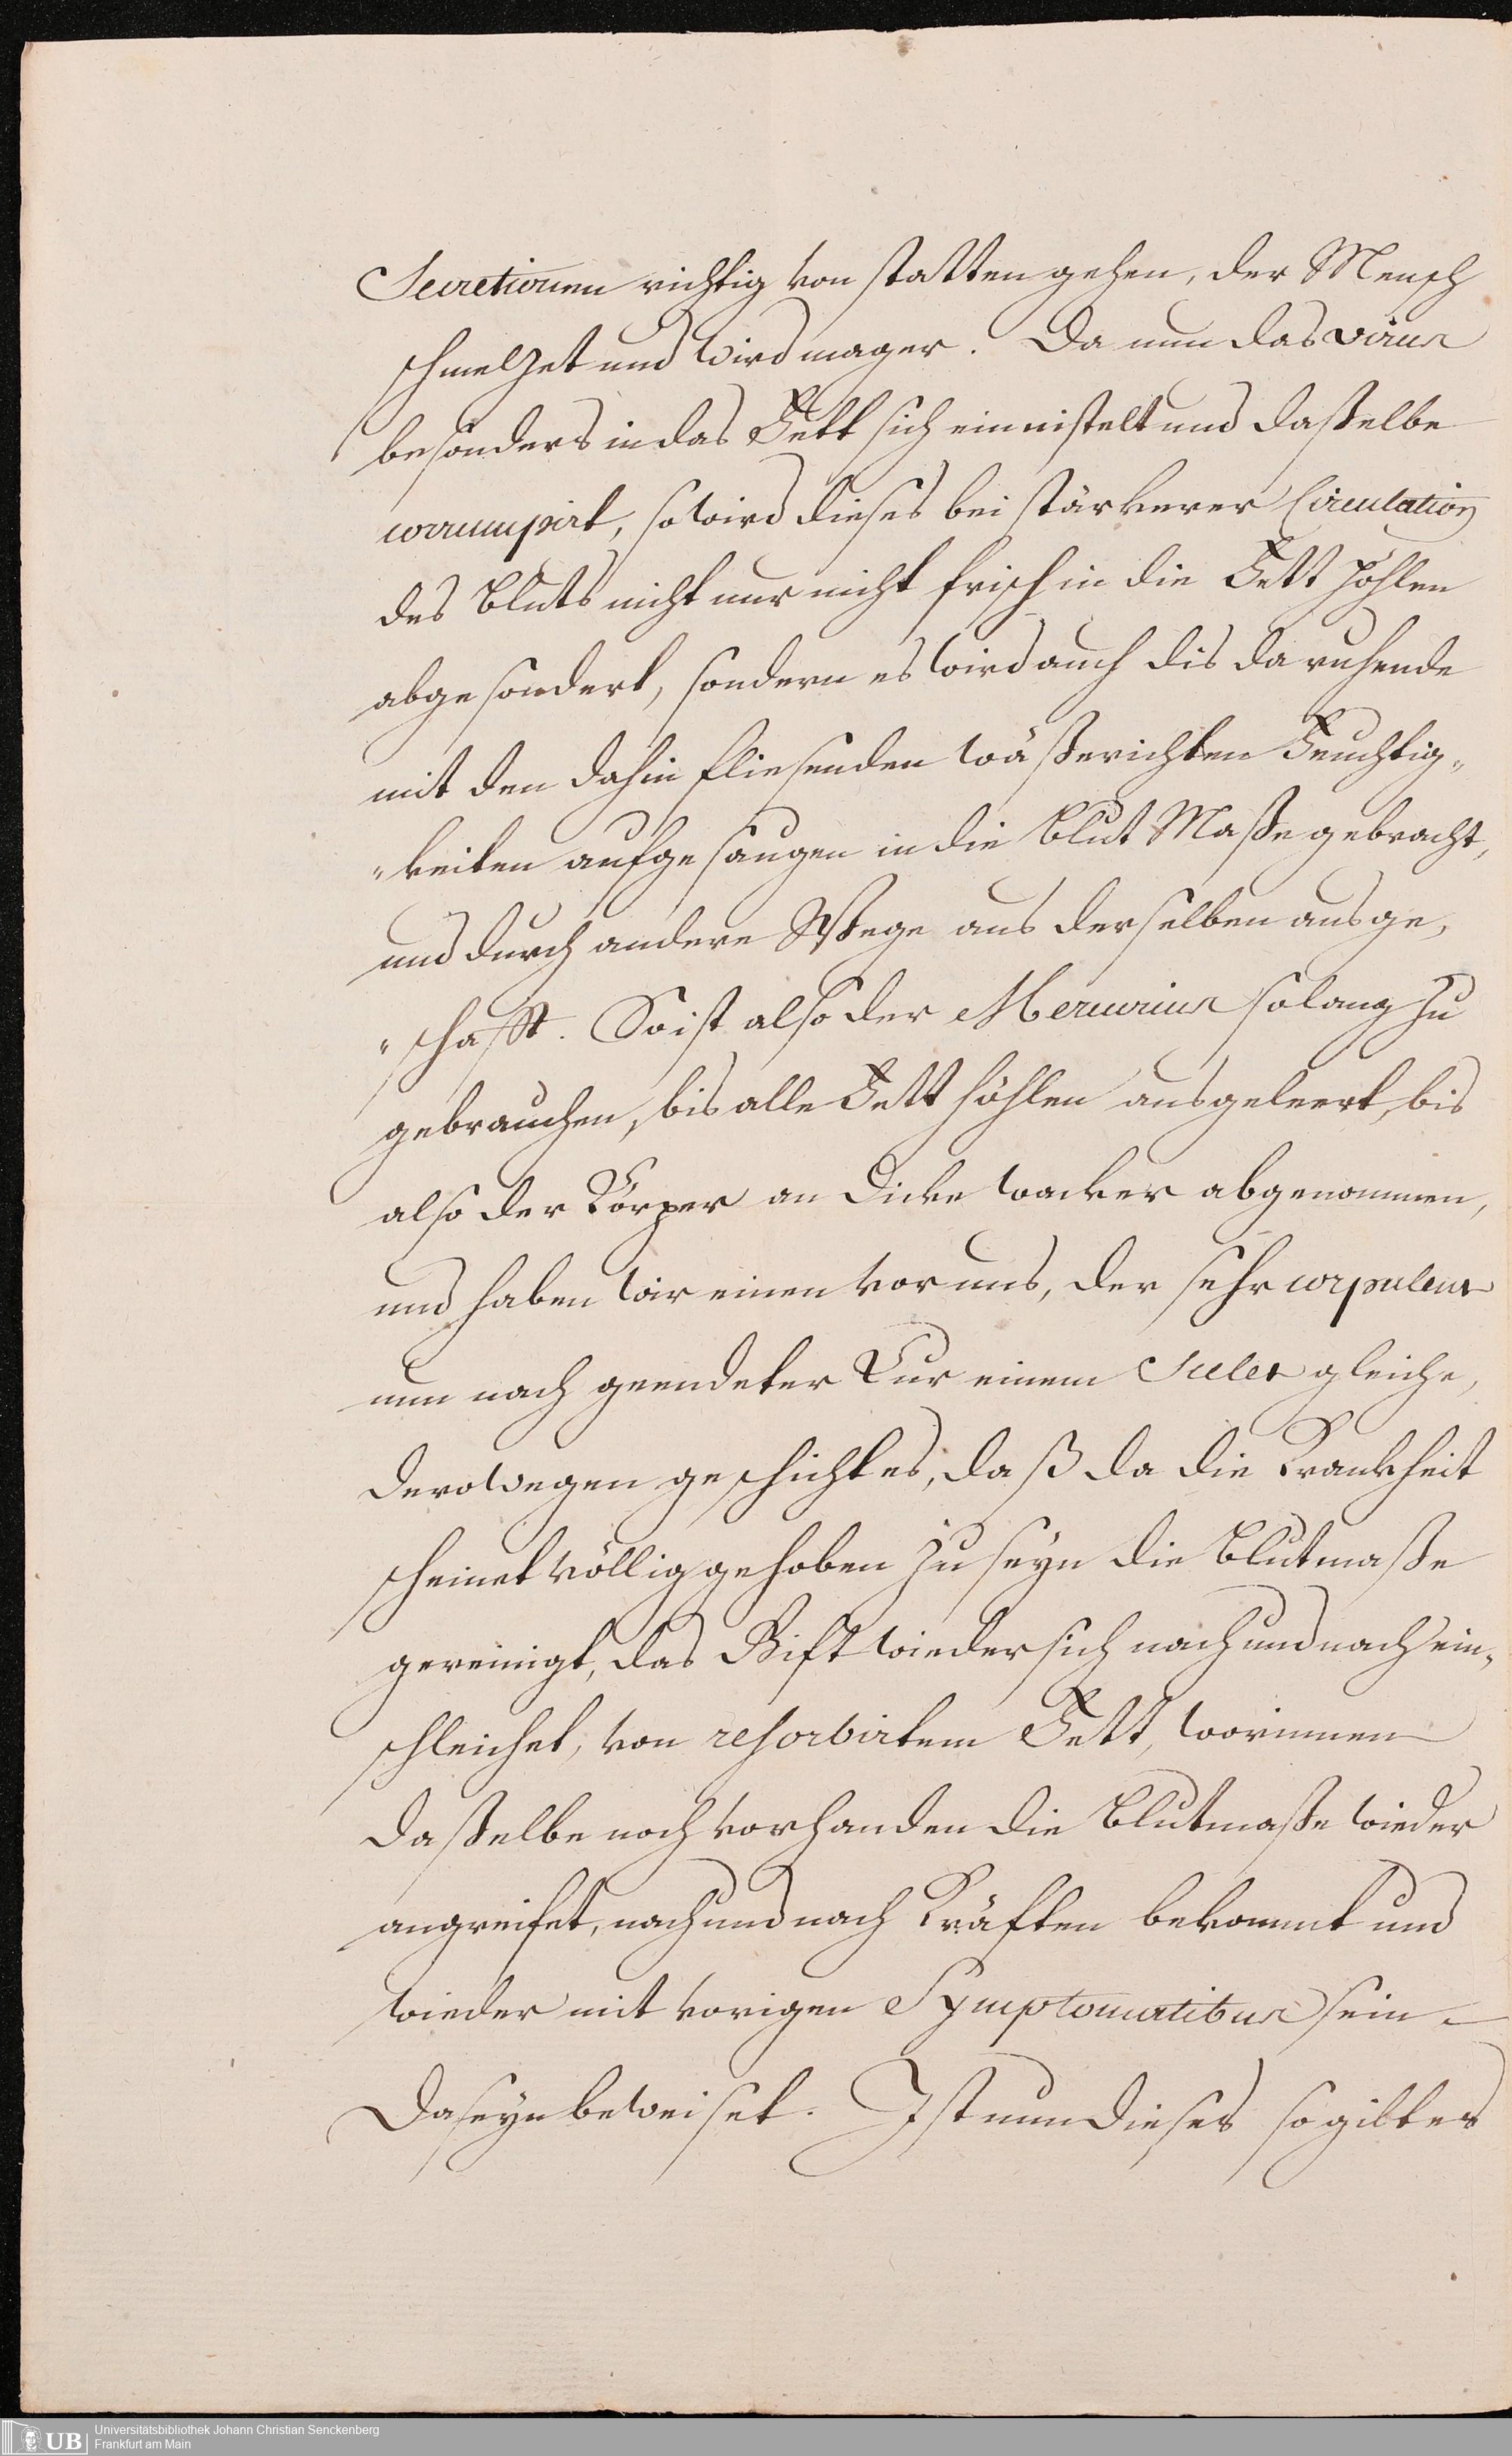 Secretionen richtig von statten gehen, der Mensch
schmelzet und wird mager. Da nun das virus
besonders in das Fett sich einnistelt und daßelbe
corrumpirt, so wird dieses bei stärkerer Circulation
des Bluts nicht nur nicht frisch in die Fett höhlen
abgesondert, sondern es wird auch dis da ruhende
mit den dahin fliesenden wäßerichten Feuchtig„
„keiten aufgesaugen in die Blut Maße gebracht,
und durch andere Wege aus derselben ausge„
„schafft. So ist also der Mercurius solang zu
gebrauchen, bis alle Fett höhlen ausgeleert, bis
also der Körper an Dicke wacker abgenommen,
und haben wir einen vor uns, der sehr corpulent
nun nach geendeter Cur einem Scelet gleiche,
derowegen geschicht es, daß da die Krankheit
scheinet völlig gehoben zu seyn die Blutmaße
gereinigt, das Gift wieder sich nach und nach ein„
schleichet, von resorbirtem Fett, worinnen
daßelbe noch vorhanden die Blutmaße wieder
angreifet, nach und nach Kräften bekommt und
wieder mit vorigen Symptomatibus sein
Daseyn beweiset. Ist nun dieses so gilt es
UB Universitätsbibliothek Johann Christian Senckenberg
Frankfurt am Main